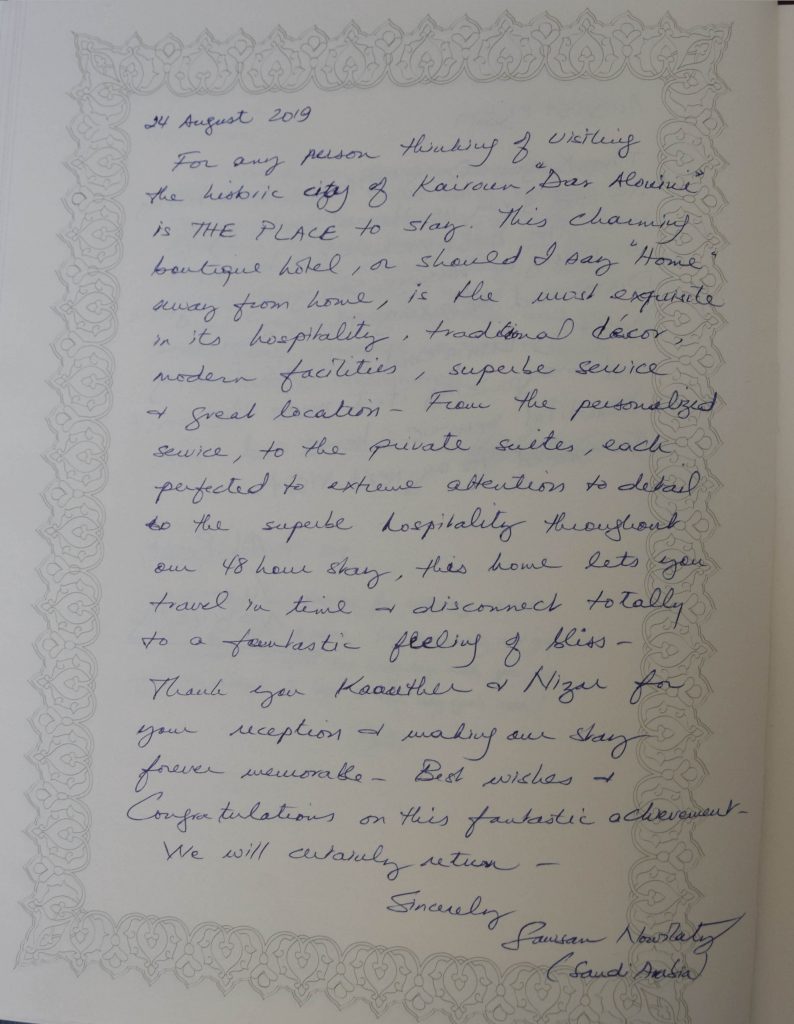 24 August 2019
For any person thinking of visiting
the historic city of Kairouan, "Dar Alouini"
is THE PLACE to stay. This charming
boutique hôtel, or should I say "Home"
away from home, is the most exquisite
in its hospitality, traditional décor,
modern facilities, superbe service
& great location - From the personalized
service, to the private suites, each
perfected to extreme attention to detail
to the superbe hospitality throughout
our 48 hour stay, this home lets you
travel in time & disconnect totally
to a fantastic feeling of bliss -
Thank you Kaouther & Nizar for
your reception & making our stay
forever memorable - Best wishes &
Congratulations on this fantastic achievement -
We will certainly return -
Sincerely
Sawsan
(Saudi Arabia)